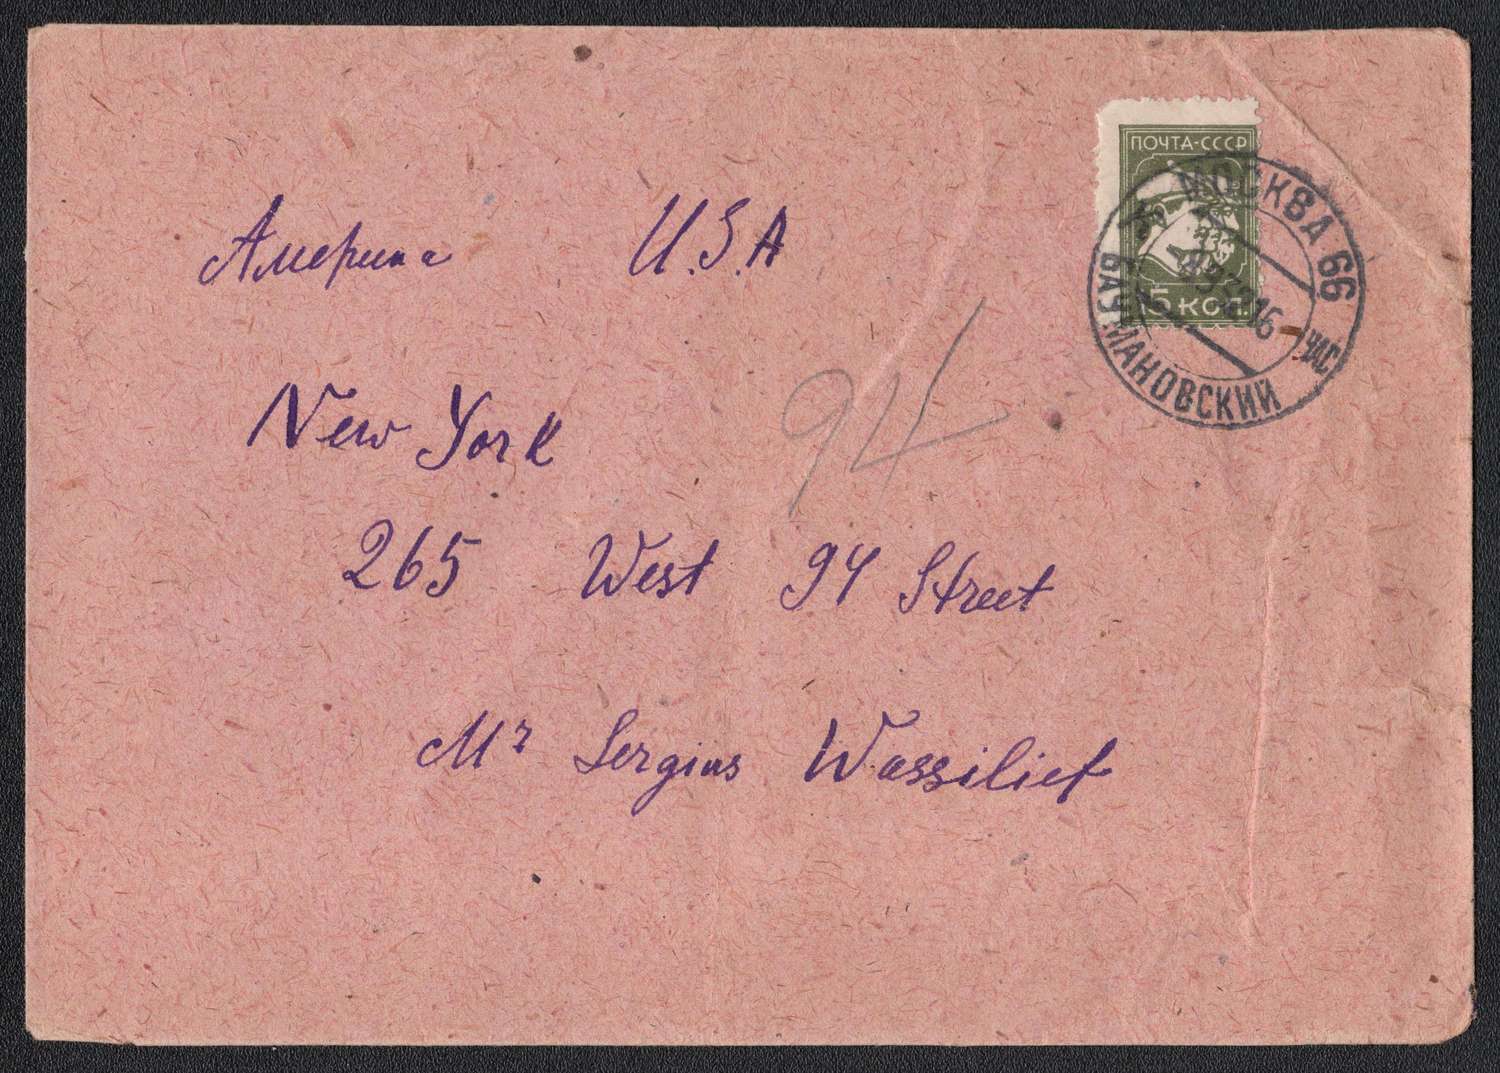 ПОЧТА-СССР
МОСКВА 66
5 КОП.
16 ЧАС
БАУМАНОВСКИЙ
Америка U.S.A
94
New York
265 West 94 Street
Mr Sergius Wassilief